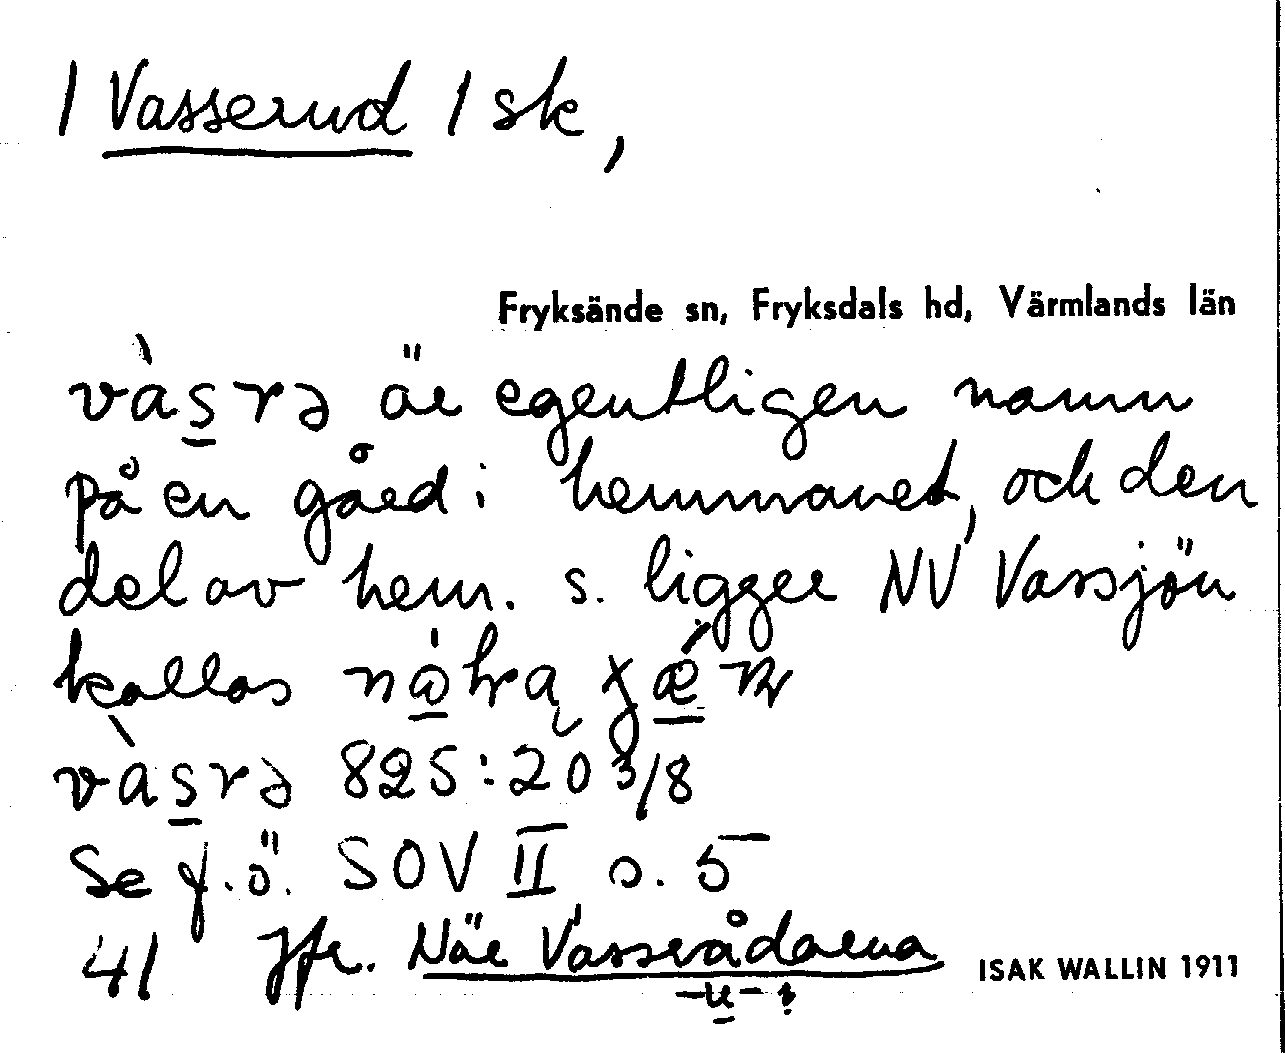 / Vasserud / sk,
Fryksände sn, Fryksdals hd, Värmlands län
vàs̠rə är egentligen namn
på en gård i hemmanet, och den
del av hem. s. ligger NV Vassjön
kallas
vàs̠rə 825:20 3/8
Se f.ö. SOV II s. 5
41 Jfr. När Vasserådarna
ISAK WALLIN 1911